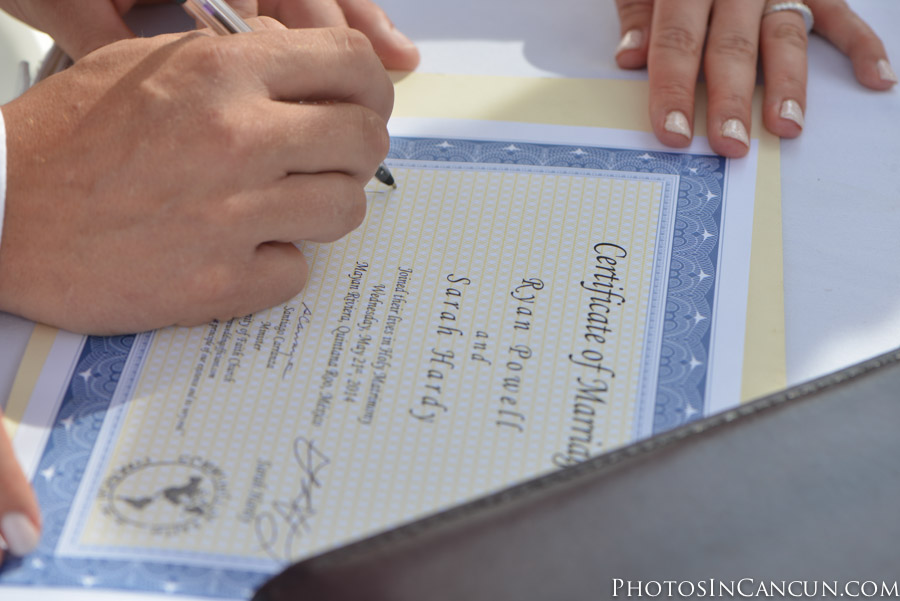 Certificate of Marriag
Ryan Powell
and
Sarah Hardy
Joined their lives in Holy Matrimony
Wednesday, May 21st, 2014
Mayan Riviera, Quintana Roo, Mexico
Santiago
Minister
of Faith Church
Sarah Hardy
PhotosInCancun.com